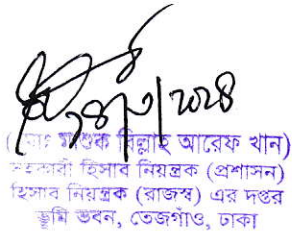 ২০২৪
(মোঃ মাশুক বিল্লাহ আরেফ খান)
সহকারী হিসাব নিয়ন্ত্রক (প্রশাসন)
হিসাব নিয়ন্ত্রক (রাজস্ব) এর দপ্তর
ভূমি ভবন, তেজগাঁও, ঢাকা